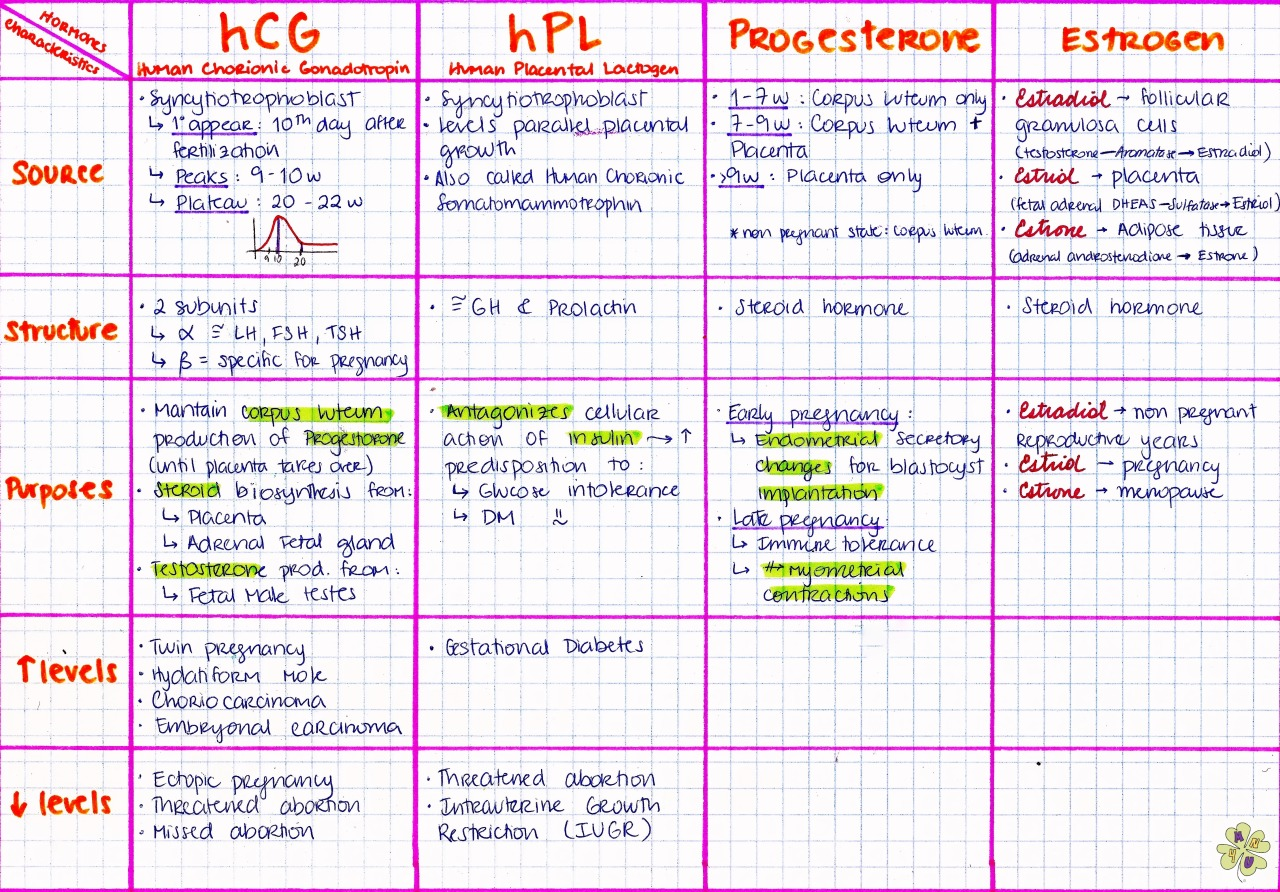 Hormones
Characteristics
hCG
Human Chorionic Gonadotropin
hPL
Human Placental Lactogen
Progesterone
Estrogen
Source
• Syncytiotrophoblast
↳ 1° appear: 10th day after
fertilization
↳ Peaks: 9-10w
↳ Plateau: 20-22w
9 10 20
• Syncytiotrophoblast
• Levels parallel placental
growth
• Also called Human Chorionic
Somatomammotrophin
• 1-7w: Corpus luteum only
• 7-9w: Corpus luteum +
Placenta
• >9w: Placenta only
* non pregnant state: corpus luteum.
• Estradiol → follicular
granulosa cells
(testosterone—Aromatase→Estradiol)
• Estriol → placenta
(fetal adrenal DHEAS—Sulfatase→Estriol)
• Estrone → Adipose tissue
(adrenal androstenodione → Estrone)
Structure
• 2 subunits
↳ α ≅ LH, FSH, TSH
↳ β = specific for pregnancy
• ≅ GH & Prolactin
• Steroid hormone
• Steroid hormone
Purposes
• Mantain corpus luteum
production of Progesterone
(until placenta takes over)
• Steroid biosynthesis from:
↳ Placenta
↳ Adrenal Fetal gland
• Testosterone prod. from:
↳ Fetal Male testes
• Antagonizes cellular
action of insulin → ↑
predisposition to:
↳ Glucose intolerance
↳ DM
• Early pregnancy:
↳ Endometrial secretory
changes for blastocyst
implantation
• Late pregnancy:
↳ Immune tolerance
↳ myometrial
contractions
• Estradiol → non pregnant
reproductive years
• Estriol → pregnancy
• Estrone → menopause
↑ levels
• Twin pregnancy
• Hydatiform Mole
• Choriocarcinoma
• Embryonal carcinoma
• Gestational Diabetes
↓ levels
• Ectopic pregnancy
• Threatened abortion
• Missed abortion
• Threatened abortion
• Intrauterine Growth
Restriction (IUGR)
M N
4 U